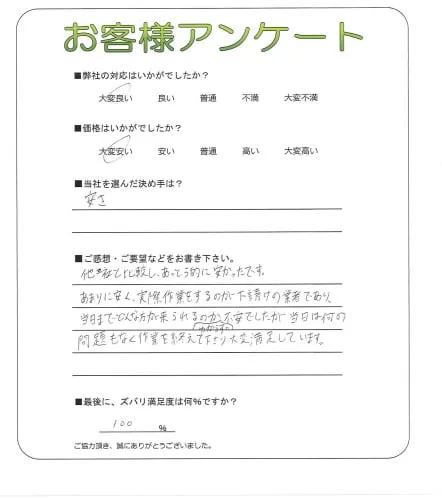 お客様アンケート
■弊社の対応はいかがでしたか？
大変良い 良い 普通 不満 大変不満
■価格はいかがでしたか？
大変安い 安い 普通 高い 大変高い
■当社を選んだ決め手は？
安さ
■ご感想・ご要望などをお書き下さい。
他社と比較し、あっとう的に安かったです。
あまりに安く、実際作業をするのが下請けの業者であり、
当日までどんな方が来られるのか不安でしたが当日は何の
問題もなく作業を終えて下さり大変満足しています。
■最後に、ズバリ満足度は何％ですか？
100 ％
ご協力頂き、誠にありがとうございました。